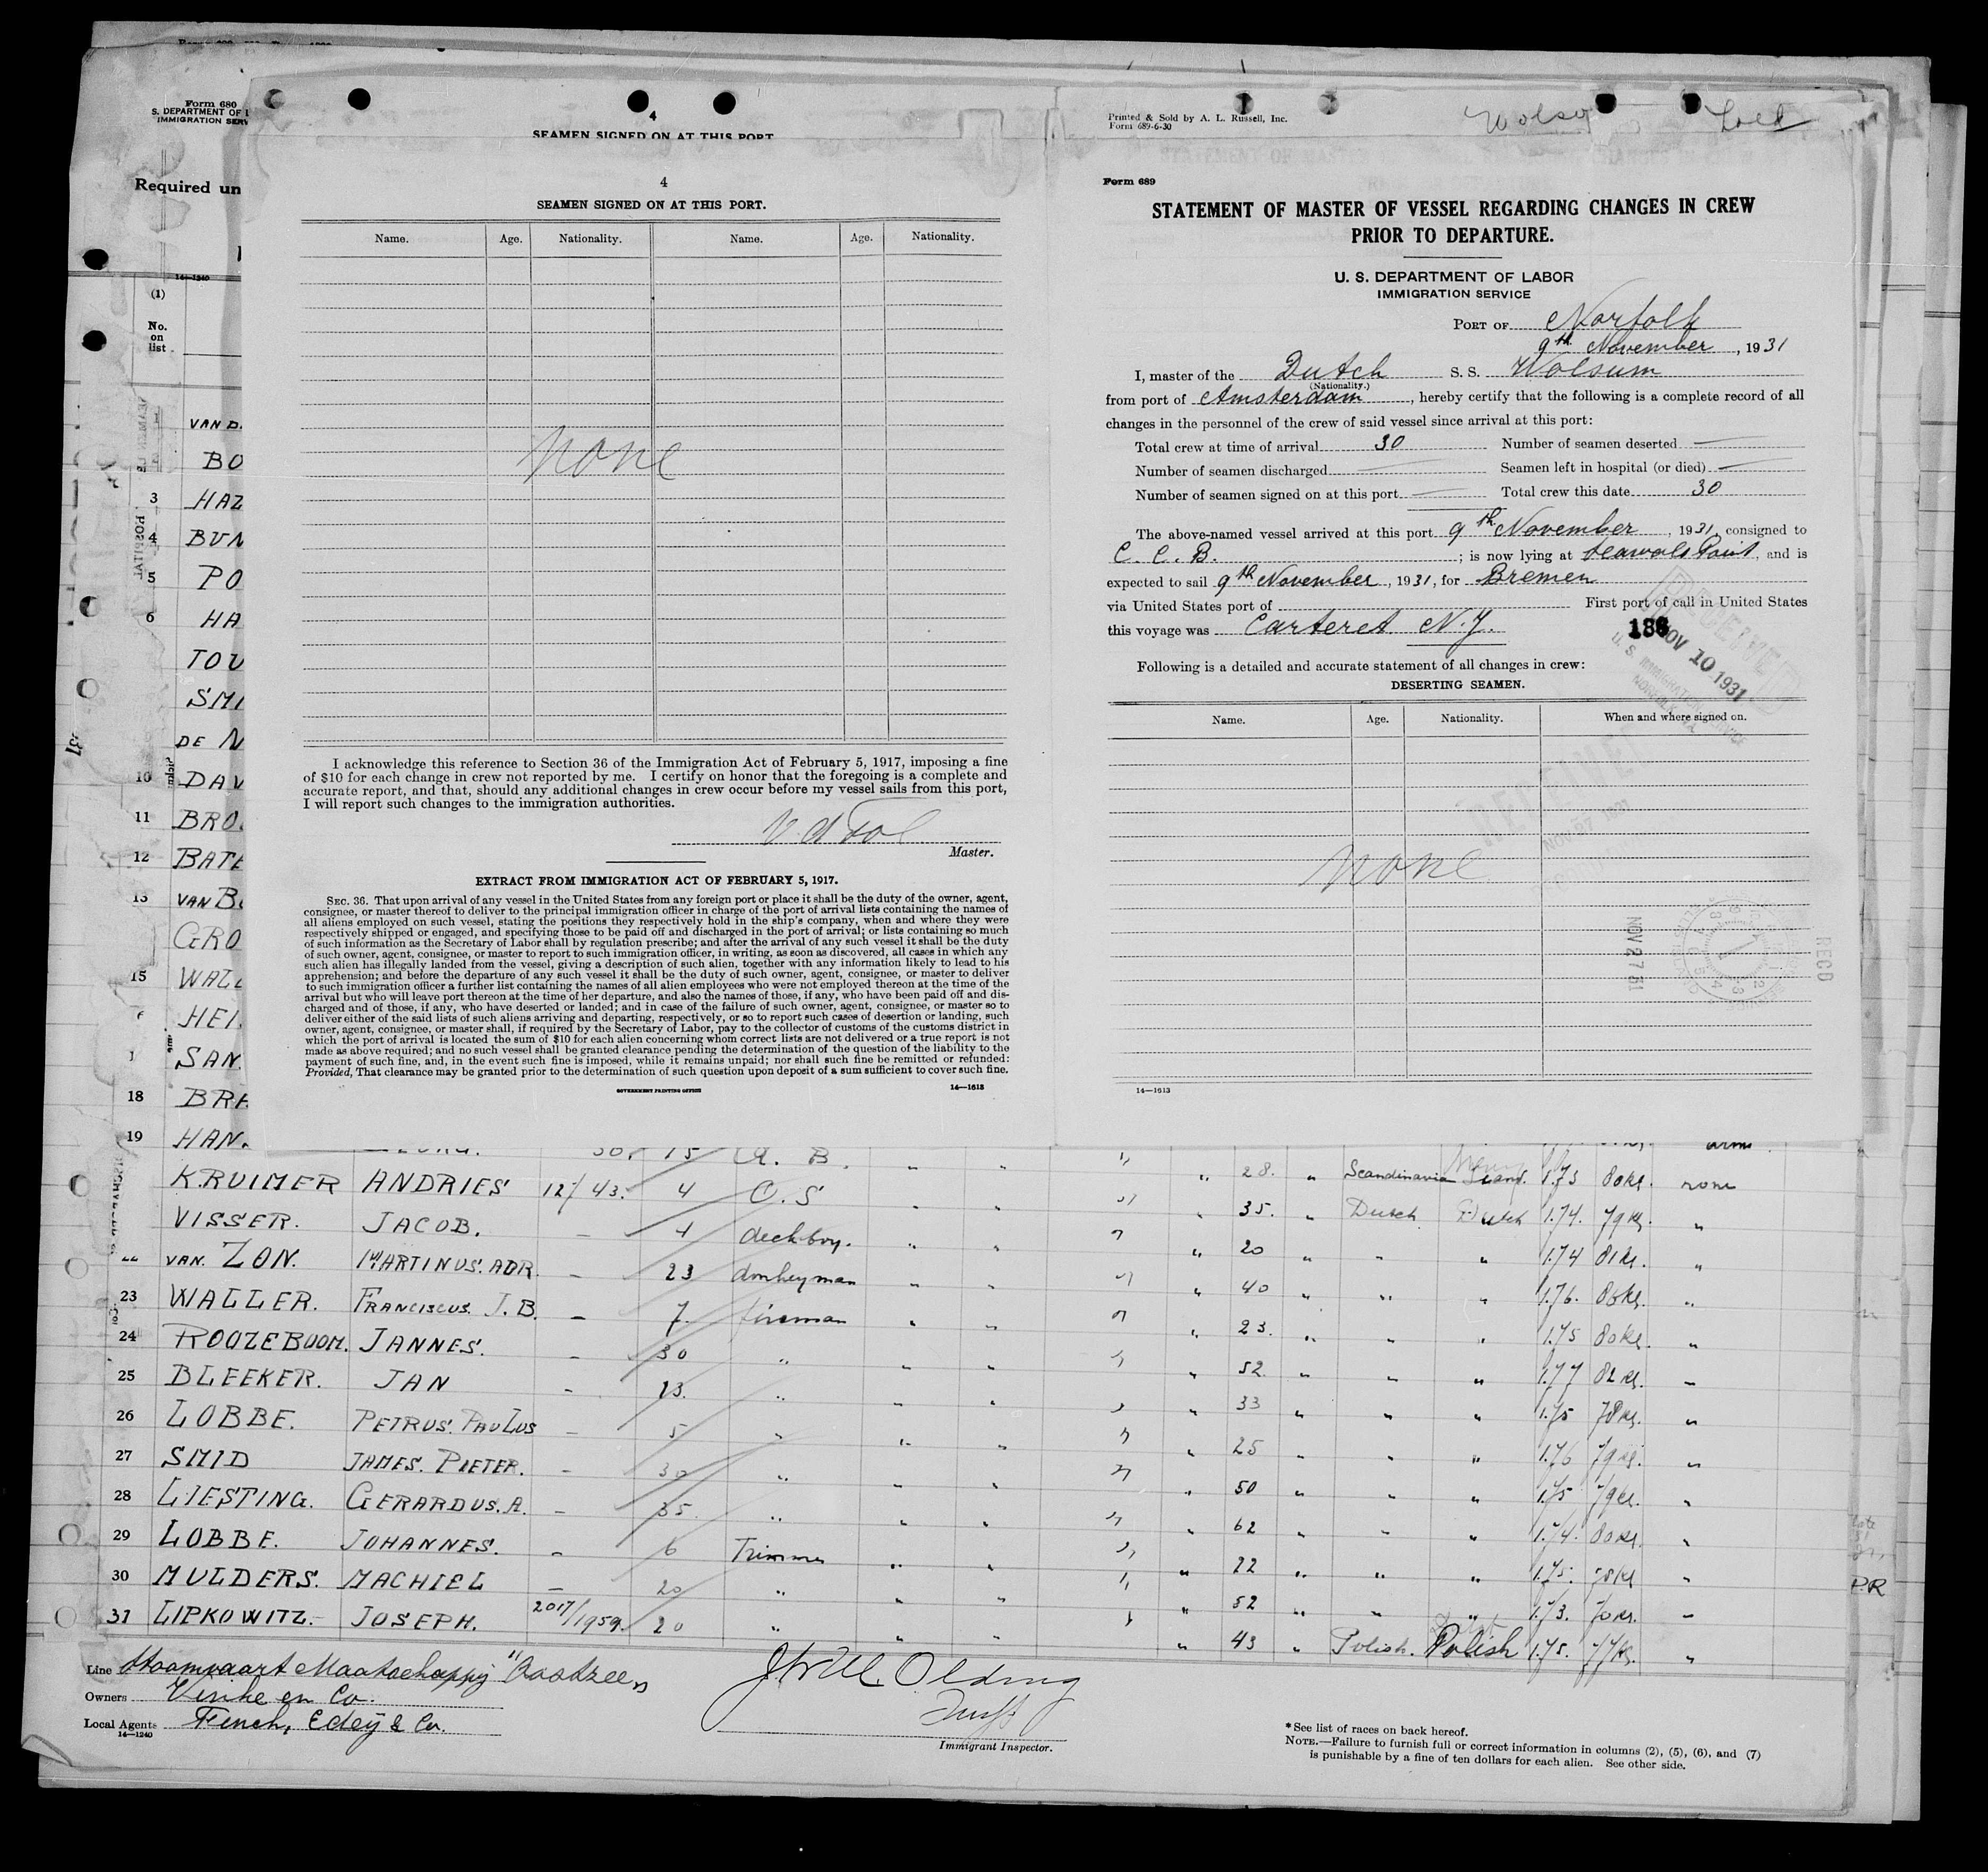 Form 680
S. DEPARTMENT OF L
IMMIGRATION SERV
Required un
14—1240
(1)
No.
on
list
VAN D.
BO
3 HAZ
4 BUN
5 PO
6 HA
TOU
SMI
DE N
10 DAV
11 BRO
12 BATE
13 VAN B
GRO
15 WAL
HEI
SAN.
18 BRA
19 HAN
4
SEAMEN SIGNED ON AT THIS PORT
4
SEAMEN SIGNED ON AT THIS PORT.
Name. Age. Nationality. Name. Age. Nationality.
none
I acknowledge this reference to Section 36 of the Immigration Act of February 5, 1917, imposing a fine
of $10 for each change in crew not reported by me. I certify on honor that the foregoing is a complete and
accurate report, and that, should any additional changes in crew occur before my vessel sails from this port,
I will report such changes to the immigration authorities.
Master.
EXTRACT FROM IMMIGRATION ACT OF FEBRUARY 5, 1917.
SEC. 36. That upon arrival of any vessel in the United States from any foreign port or place it shall be the duty of the owner, agent,
consignee, or master thereof to deliver to the principal immigration officer in charge of the port of arrival lists containing the names of
all aliens employed on such vessel, stating the positions they respectively hold in the ship's company, when and where they were
respectively shipped or engaged, and specifying those to be paid off and discharged in the port of arrival; or lists containing so much
of such information as the Secretary of Labor shall by regulation prescribe; and after the arrival of any such vessel it shall be the duty
of such owner, agent, consignee, or master to report to such immigration officer, in writing, as soon as discovered, all cases in which any
such alien has illegally landed from the vessel, giving a description of such alien, together with any information likely to lead to his
apprehension; and before the departure of any such vessel it shall be the duty of such owner, agent, consignee, or master to deliver
to such immigration officer a further list containing the names of all alien employees who were not employed thereon at the time of the
arrival but who will leave port thereon at the time of her departure, and also the names of those, if any, who have been paid off and dis-
charged and of those, if any, who have deserted or landed; and in case of the failure of such owner, agent, consignee, or master so to
deliver either of the said lists of such aliens arriving and departing, respectively, or so to report such cases of desertion or landing, such
owner, agent, consignee, or master shall, if required by the Secretary of Labor, pay to the collector of customs of the customs district in
which the port of arrival is located the sum of $10 for each alien concerning whom correct lists are not delivered or a true report is not
made as above required; and no such vessel shall be granted clearance pending the determination of the question of the liability to the
payment of such fine, and, in the event such fine is imposed, while it remains unpaid; nor shall such fine be remitted or refunded:
Provided, That clearance may be granted prior to the determination of such question upon deposit of a sum sufficient to cover such fine.
GOVERNMENT PRINTING OFFICE 14—1613
Printed & Sold by A. L. Russell, Inc.
Form 689-6-30
Form 689
STATEMENT OF MASTER OF VESSEL REGARDING CHANGES IN CREW
PRIOR TO DEPARTURE.
U. S. DEPARTMENT OF LABOR
IMMIGRATION SERVICE
PORT OF Norfolk
9th November, 1931
I, master of the Dutch S. S. Wolsum
(Nationality.)
from port of Amsterdam, hereby certify that the following is a complete record of all
changes in the personnel of the crew of said vessel since arrival at this port:
Total crew at time of arrival 30 Number of seamen deserted —
Number of seamen discharged — Seamen left in hospital (or died) —
Number of seamen signed on at this port — Total crew this date 30
The above-named vessel arrived at this port 9th November, 1931, consigned to
C. C. B.; is now lying at Sewarls Point, and is
expected to sail 9th November, 1931, for Bremen
via United States port of First port of call in United States
this voyage was Carteret N.J.
RECEIVED
NOV 10 1931
U. S. IMMIGRATION SERVICE
NORFOLK, VA.
Following is a detailed and accurate statement of all changes in crew:
DESERTING SEAMEN.
Name. Age. Nationality. When and where signed on.
none
RECEIVED
NOV 27 1931
NOV 27 31
RECD
14—1613
KRUIMER ANDRIES 12/43. 4 O. S " " " " 28. " Scandinavian Scand. 1.73 80 kg. none
VISSER. JACOB. – 4 deckboy. " " " " 35. " Dutch Dutch 1.74. 79 kg. "
VAN. ZON. MARTINUS. ADR. – 23 donkeyman " " " " 20 " " " 1.74 81 kg. "
23 WALLER. FRANCISCUS. J. B. – 7. fireman " " " " 40 " " " 1.76. 80 kg. "
24 ROOZEBOOM. JANNES. – 30 " " " " " 23. " " " 1.75 80 kg. "
25 BLEEKER. JAN – 13. " " " " " 52. " " " 1.77 82 kg. "
26 LOBBE. PETRUS. PAULUS – 5 " " " " " 33 " " " 1.75 78 kg. "
27 SMID JAMES. PIETER. – 30 " " " " " 25 " " " 1.76 79 kg. "
28 LIESTING. GERARDUS. A. – 35. " " " " " 50 " " " 1.75 79 kg. "
29 LOBBE. JOHANNES. – 6 Trimmer " " " " 62 " " " 1.74. 80 kg. "
30 MULDERS. MACHIEL – 20 " " " " " 22 " " " 1.75. 78 kg "
31 LIPKOWITZ. JOSEPH. 2017/1959. 20 " " " " " 52 " " " 1.73. 70 kg. "
43 " Polish. Polish 1.75. 77 kg. "
P.R
Line Stoomvaart Maatschappij "Oostzee"
Owners Vinke en Co.
Local Agents Funch, Edeÿ & Co.
14—1240
Immigrant Inspector.
*See list of races on back hereof.
NOTE.—Failure to furnish full or correct information in columns (2), (5), (6), and (7)
is punishable by a fine of ten dollars for each alien. See other side.